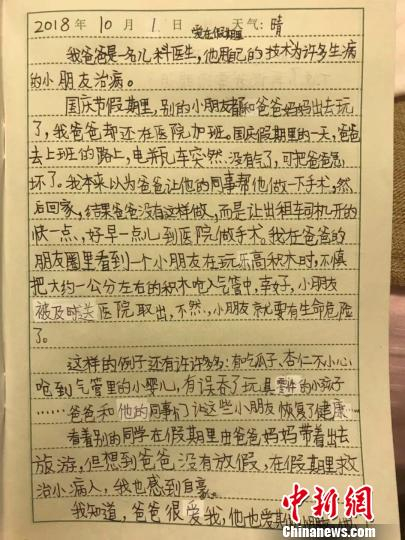 2018年 10月 1日 天气:晴
爱在假期里
我爸爸是一名儿科医生,他用自己的技术为许多生病
的小朋友治病。
国庆节假期里,别的小朋友都和爸爸妈妈出去玩
了,我爸爸却还在医院加班。国庆假期里的一天,爸爸
去上班的路上,电瓶车突然没有气了,可把爸爸急
坏了。我本来以为爸爸让他的同事帮他做一下手术,然
后回家,结果爸爸没有这样做,而是让出租车司机开的
快一点,好早一点儿到医院做手术。我在爸爸的
朋友圈里看到一个小朋友在玩乐高积木时,不慎
把大约一公分左右的积木呛入气管中,幸好,小朋友
被及时送医院取出,不然,小朋友就要有生命危险
了。
这样的例子还有许许多多:有吃瓜子、杏仁不小心
呛到气管里的小婴儿,有误吞了玩具零件的小孩子
……爸爸和他的同事们让这些小朋友恢复了健康…
看着别的同学在假期里由爸爸妈妈带着出去
旅游,但想到爸爸没有放假,在假期里救
治小病人,我也感到自豪。
我知道,爸爸很爱我,他也爱
中新网